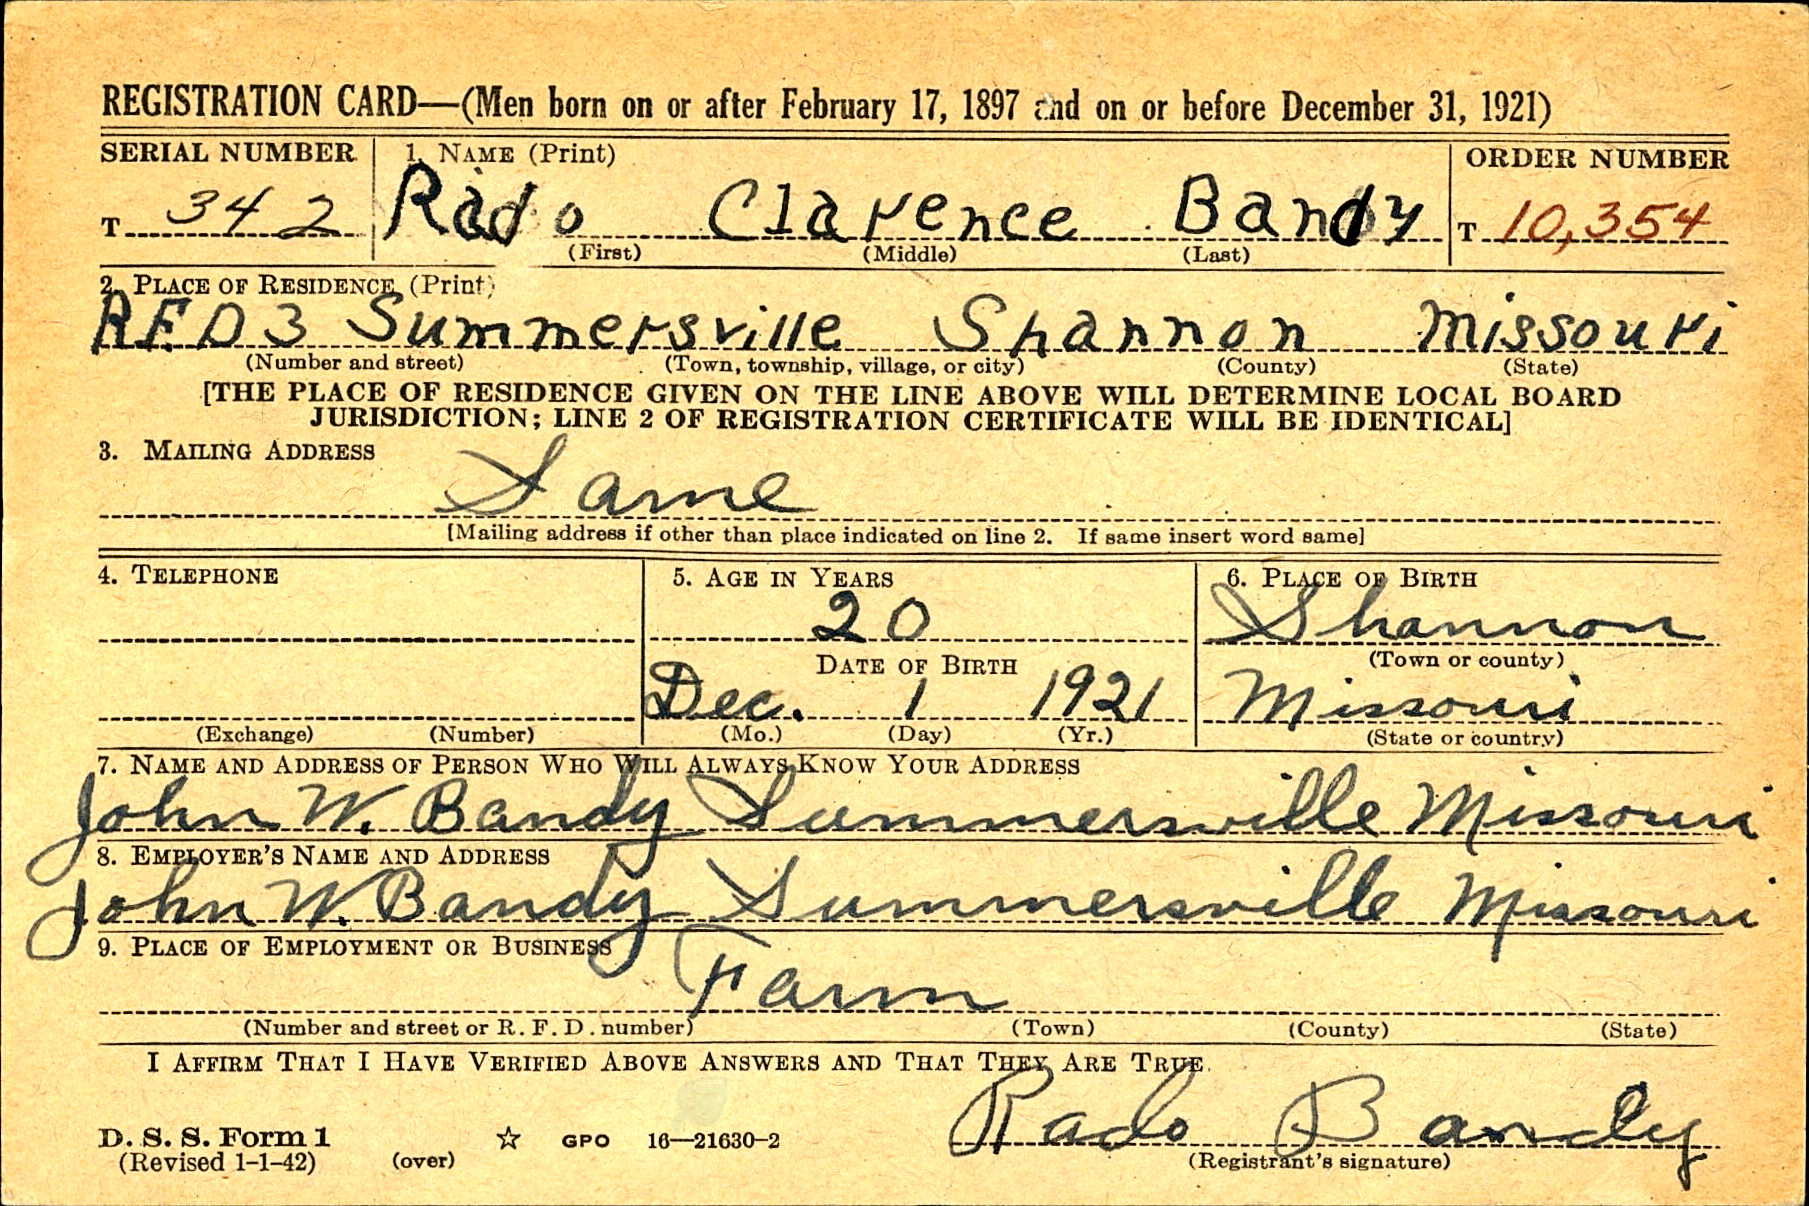 REGISTRATION CARD—(Men born on or after February 17, 1897 and on or before December 31, 1921)
SERIAL NUMBER 1. NAME (Print) ORDER NUMBER
T 342 Rado Clarence Bandy T 10,354
(First) (Middle) (Last)
2. PLACE OF RESIDENCE (Print)
R.F.D 3 Summersville Shannon Missouri
(Number and street) (Town, township, village, or city) (County) (State)
[THE PLACE OF RESIDENCE GIVEN ON THE LINE ABOVE WILL DETERMINE LOCAL BOARD
JURISDICTION; LINE 2 OF REGISTRATION CERTIFICATE WILL BE IDENTICAL]
3. MAILING ADDRESS
Same
[Mailing address if other than place indicated on line 2. If same insert word same]
4. TELEPHONE 5. AGE IN YEARS 6. PLACE OF BIRTH
20 Shannon
DATE OF BIRTH (Town or county)
Dec. 1 1921 Missouri
(Exchange) (Number) (Mo.) (Day) (Yr.) (State or country)
7. NAME AND ADDRESS OF PERSON WHO WILL ALWAYS KNOW YOUR ADDRESS
John W. Bandy Summersville Missouri
8. EMPLOYER'S NAME AND ADDRESS
John W. Bandy Summersville Missouri
9. PLACE OF EMPLOYMENT OR BUSINESS
Farm
(Number and street or R. F. D. number) (Town) (County) (State)
I AFFIRM THAT I HAVE VERIFIED ABOVE ANSWERS AND THAT THEY ARE TRUE.
Rado Bandy
D. S. S. Form 1 ☆ GPO 16—21630-2
(Revised 1-1-42) (over) (Registrant's signature)